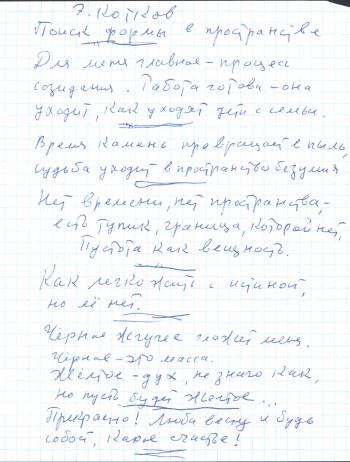 Э. Котков
Поиск формы в пространстве
Для меня главное - процесс
созидания. Работа готова - она
уходит, как уходят дети с семьи.
Время камень превращает в пыль,
судьба уходит в пространство безумия
Нет времени, нет пространства, -
есть тупик, граница, которой нет,
Пустота как вещность.
Как легко жить с истиной,
но её нет.
Чёрное жгучее гложет меня.
Чёрное - это масса.
Жёлтое - дух, не знаю как,
но пусть будет жёлтое...
Прекрасно! Люби весну и будь
собой, какое счастье!